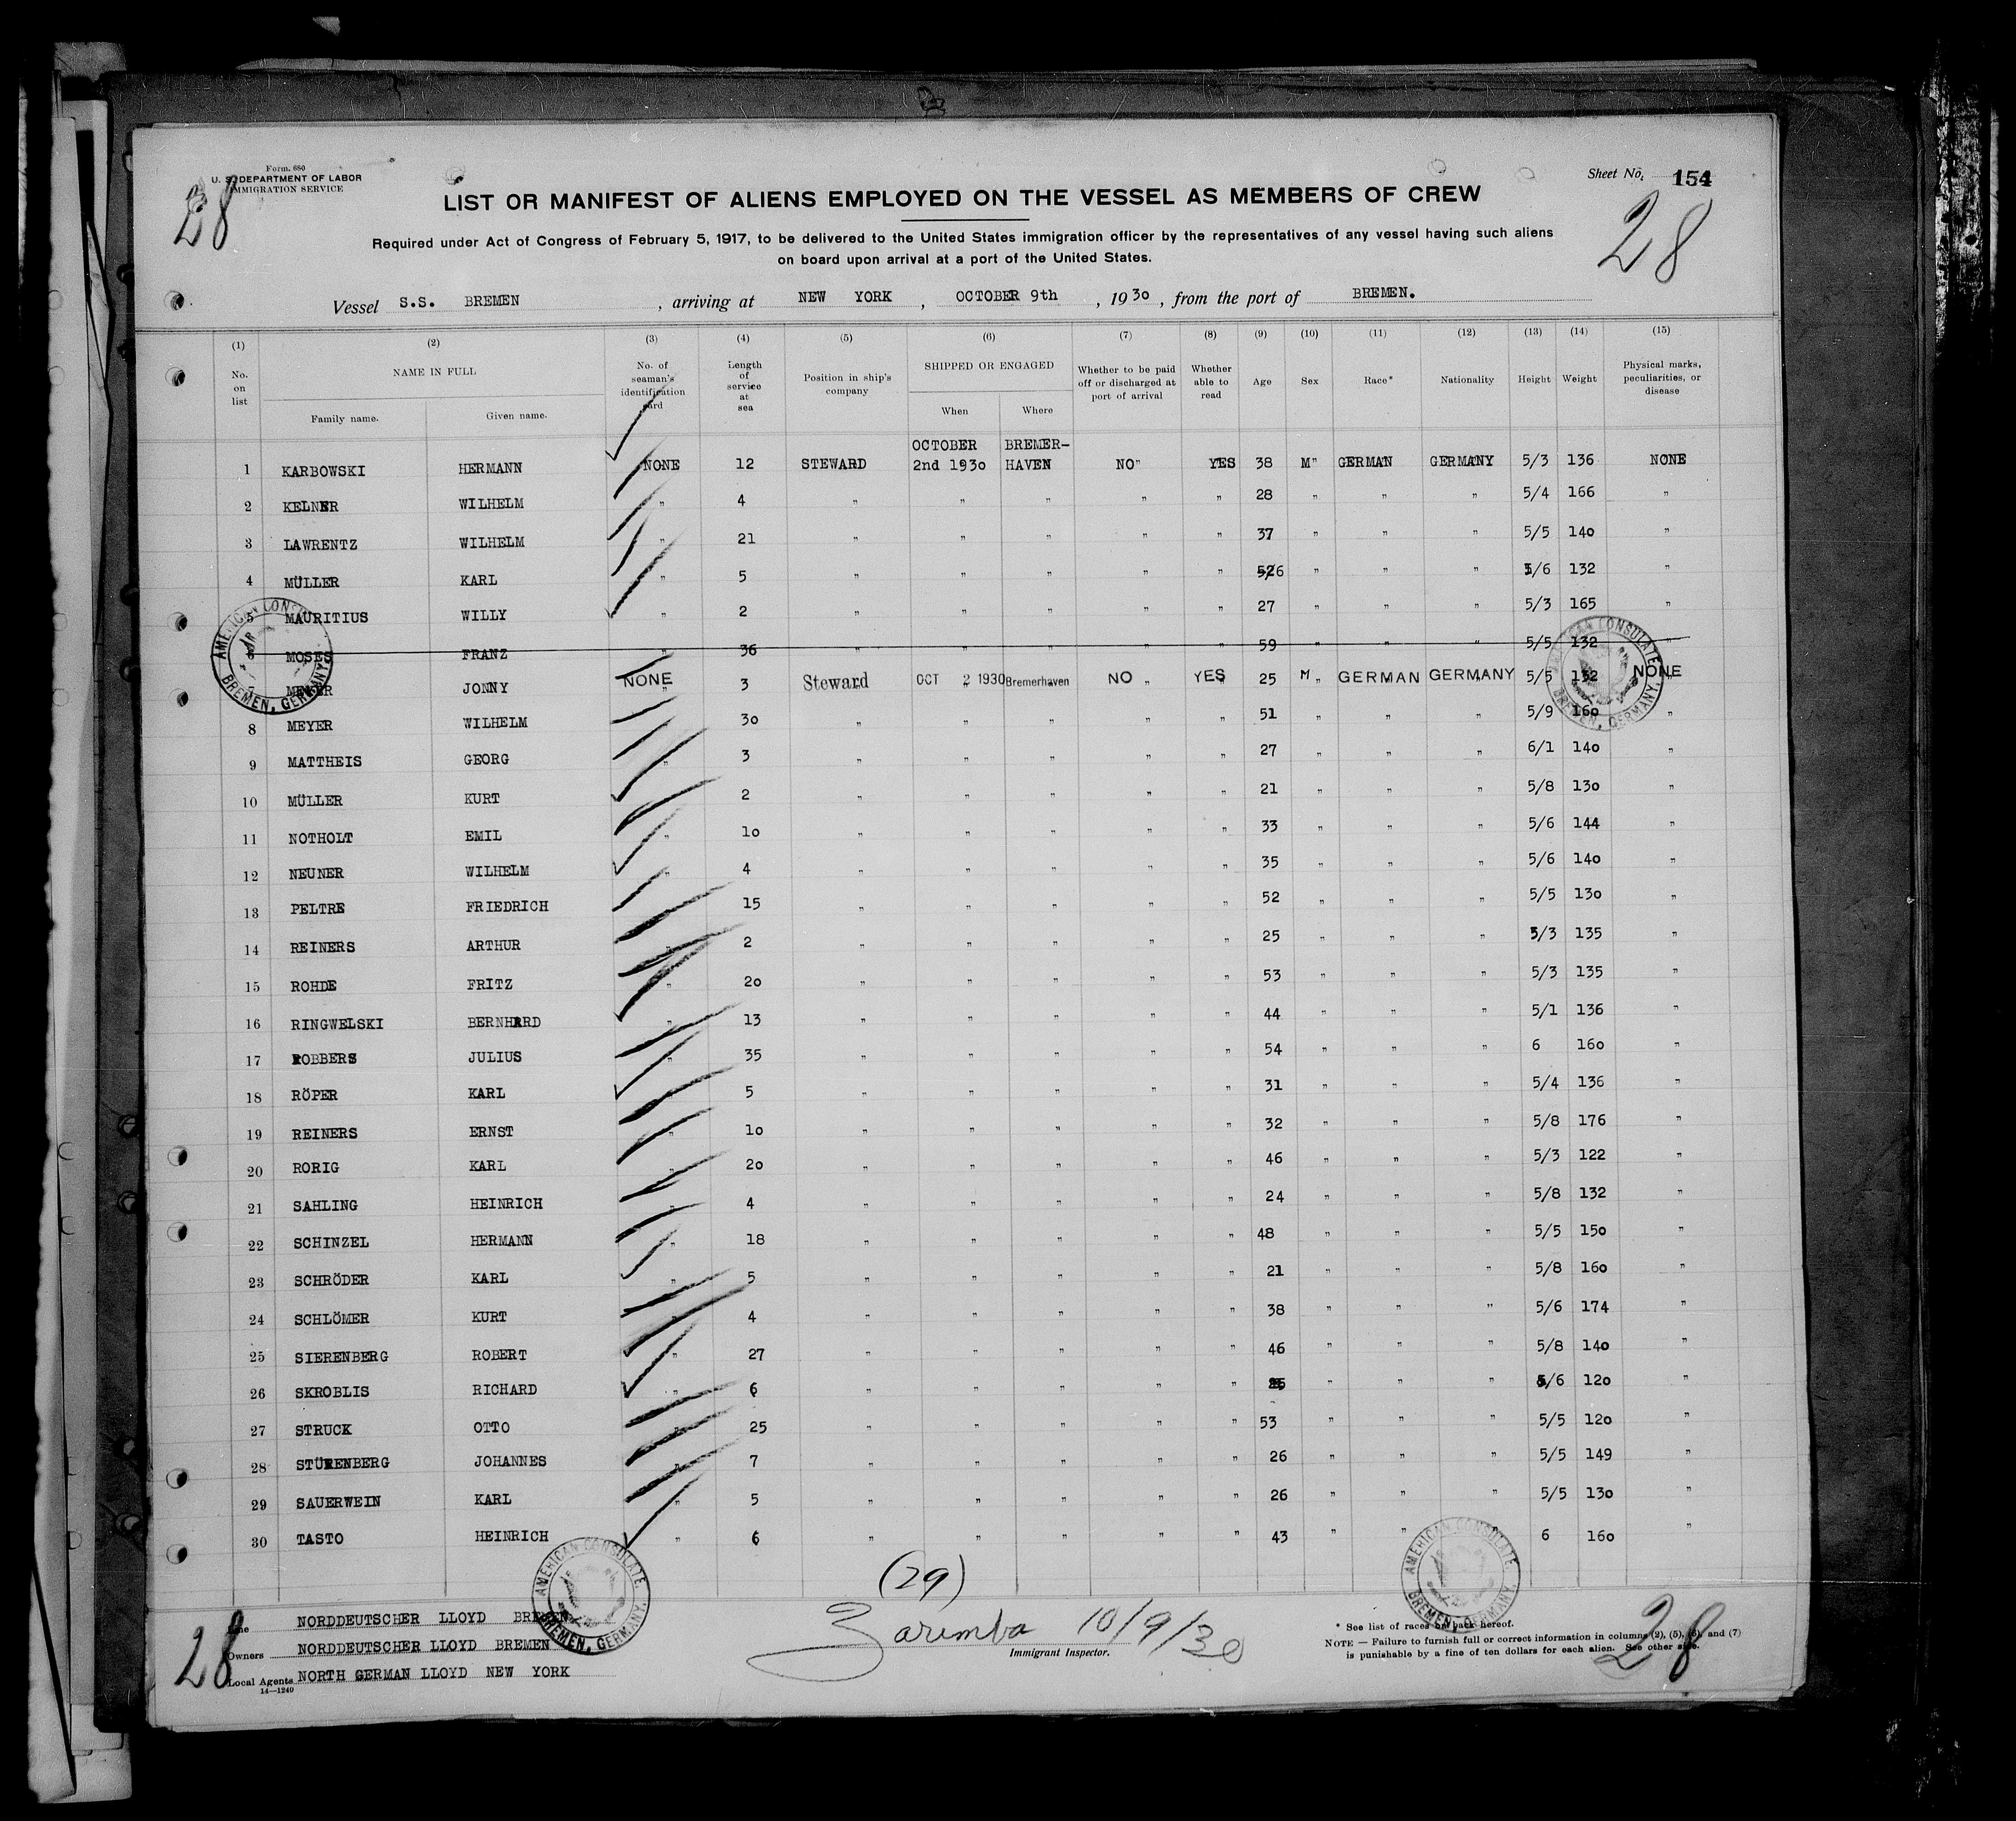 Form. 680
U. S. DEPARTMENT OF LABOR
IMMIGRATION SERVICE
Sheet No. 154
28
28
LIST OR MANIFEST OF ALIENS EMPLOYED ON THE VESSEL AS MEMBERS OF CREW
Required under Act of Congress of February 5, 1917, to be delivered to the United States immigration officer by the representatives of any vessel having such aliens
on board upon arrival at a port of the United States.
Vessel S.S. BREMEN , arriving at NEW YORK , OCTOBER 9th , 1930 , from the port of BREMEN.
(1) (2) (3) (4) (5) (6) (7) (8) (9) (10) (11) (12) (13) (14) (15)
No. on list NAME IN FULL Family name. Given name. No. of seaman's identification card Length of service at sea Position in ship's company SHIPPED OR ENGAGED When Where Whether to be paid off or discharged at port of arrival Whether able to read Age Sex Race* Nationality Height Weight Physical marks, peculiarities, or disease
1 KARBOWSKI HERMANN NONE 12 STEWARD OCTOBER 2nd 1930 BREMER-HAVEN NO" YES 38 M" GERMAN GERMANY 5/3 136 NONE
2 KELNER WILHELM " 4 " " " " " 28 " " " 5/4 166 "
3 LAWRENTZ WILHELM " 21 " " " " " 37 " " " 5/5 140 "
4 MÜLLER KARL " 5 " " " " " 526 " " " 5/6 132 "
5 MAURITIUS WILLY " 2 " " " " " 27 " " " 5/3 165 "
MOSES FRANZ 36 " " " " " 59 " " " 5/5 132 "
7 MEYER JONNY NONE " 3 Steward OCT 2 1930 Bremerhaven NO " YES 25 M " GERMAN GERMANY 5/5 132 NONE
8 MEYER WILHELM 30 " " " " " 51 " " " 5/9 160 "
9 MATTHEIS GEORG " 3 " " " " " 27 " " " 6/1 140 "
10 MÜLLER KURT 2 " " " " " 21 " " " 5/8 130 "
11 NOTHOLT EMIL " 10 " " " " " 33 " " " 5/6 144 "
12 NEUNER WILHELM " 4 " " " " " 35 " " " 5/6 140 "
13 PELTRE FRIEDRICH 15 " " " " " 52 " " " 5/5 130 "
14 REINERS ARTHUR " 2 " " " " " 25 " " " 5/3 135 "
15 ROHDE FRITZ " 20 " " " " " 53 " " " 5/3 135 "
16 RINGWELSKI BERNHARD " 13 " " " " " 44 " " " 5/1 136 "
17 ROBBERS JULIUS " 35 " " " " " 54 " " " 6 160 "
18 RÖPER KARL 5 " " " " " 31 " " " 5/4 136 "
19 REINERS ERNST " 10 " " " " " 32 " " " 5/8 176 "
20 RORIG KARL " 20 " " " " " 46 " " " 5/3 122 "
21 SAHLING HEINRICH 4 " " " " " 24 " " " 5/8 132 "
22 SCHINZEL HERMANN " 18 " " " " " 48 " " " 5/5 150 "
23 SCHRÖDER KARL " 5 " " " " " 21 " " " 5/8 160 "
24 SCHLÖMER KURT " 4 " " " " " 38 " " " 5/6 174 "
25 SIERENBERG ROBERT " 27 " " " " " 46 " " " 5/8 140 "
26 SKROBLIS RICHARD " 6 " " " " " " " " 5/6 120 "
27 STRUCK OTTO " 25 " " " " " 53 " " " 5/5 120 "
28 STÜRENBERG JOHANNES " 7 " " " " " 26 " " " 5/5 149 "
29 SAUERWEIN KARL " 5 " " " " " 26 " " " 5/5 130 "
30 TASTO HEINRICH " 6 " " " " " 43 " " 6 160 "
AMERICAN CONSULATE. BREMEN, GERMANY.
AMERICAN CONSULATE. BREMEN, GERMANY.
AMERICAN CONSULATE. BREMEN, GERMANY.
AMERICAN CONSULATE. BREMEN, GERMANY.
(29)
Line NORDDEUTSCHER LLOYD BREMEN
Owners NORDDEUTSCHER LLOYD BREMEN
Local Agents NORTH GERMAN LLOYD NEW YORK
14—1240
28
Zaremba 10/9/30
Immigrant Inspector.
* See list of races on back hereof.
NOTE — Failure to furnish full or correct information in columns (2), (5), (6), and (7)
is punishable by a fine of ten dollars for each alien. See other side.
28